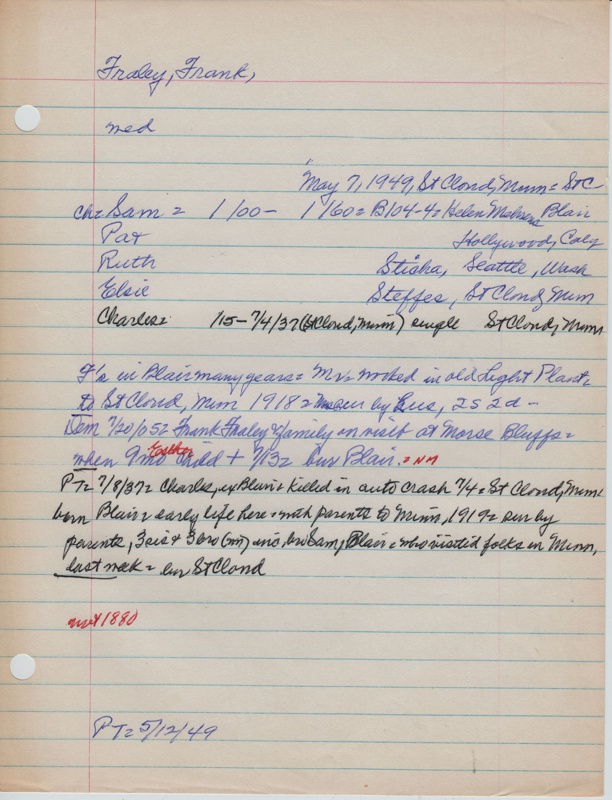 Fraley, Frank,
med
May 7, 1949, St Cloud, Minn = St C
ch = Sam = 1/00 - 1/60 = B104-4 = Helen Blair
Pat Hollywood, Calif
Ruth Sticha, Seattle, Wash
Elsie Steffes, St Cloud, Minn
Charles = /15 - 7/4/37 (St Cloud, Minn) single St Cloud, Minn
F's in Blair many years = Mr = worked in old Light Plant =
to St Cloud, Minn 1918 = sur by 2s 2d -
Dem 7/20/05 = Frank Fraley & family on visit at Morse Bluffs =
Esther
when 9 mo child + 7/13 = bur Blair. = NM
PT = 7/8/37 = Charles, ex Blair = killed in auto crash 7/4 = St Cloud, Minn
born Blair = early life here = with parents to Minn, 1919 = sur by
parents, 3 sis & 3 bro (nn) inc. bro Sam, Blair = who visited folks in Minn,
last week = bur St Cloud
not 1880
PT = 5/12/49